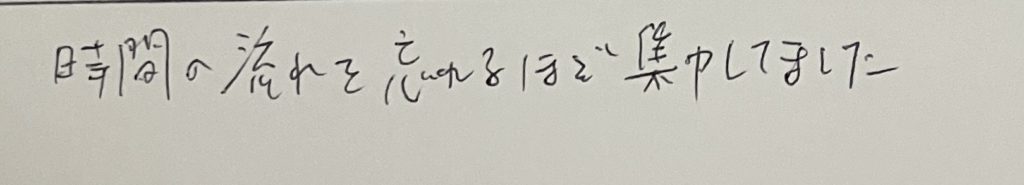 時間の流れを忘れるほど集中してました